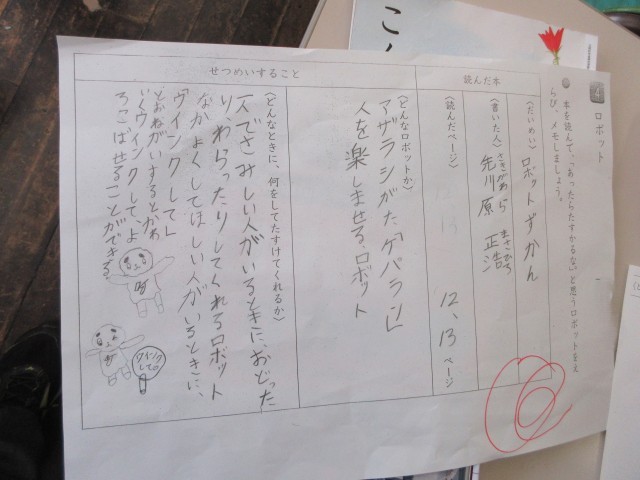 ロボット
本を読んで、「あったらたすかるな」と思うロボットをえ
らび、メモしましょう。
読んだ本
(だいめい) ロボットずかん
さきがわら まさひろ
(書いた人) 先川原 正浩
(読んだページ) 12、13 ページ
せつめいすること
(どんなロボットか)
アザラシがた、「ケパラン」
人を楽しませる、ロボット
(どんなときに、何をしてたすけてくれるか)
一人でさみしい人がいるときに、おどった
り、わらったりしてくれるロボット
なかよくしてほしい人がいるときに、
「ウインクして」
とおねがいすると、かわ
いくウインクして、よ
ろこばせることができる。
ウインク
して
こ